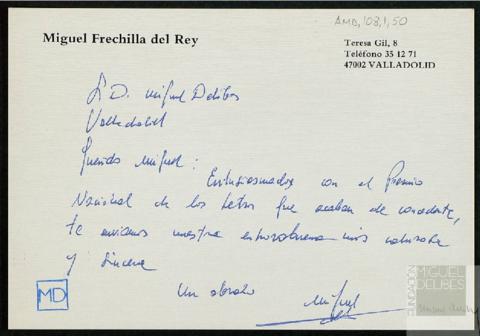 AMD, 108, 1, 50
Miguel Frechilla del Rey
Teresa Gil, 8
Teléfono 35 12 71
47002 VALLADOLID
D. Miguel Delibes
Valladolid
Querido Miguel:
Entusiasmados con el Premio
Nacional de las Letras que acaban de concederte,
te enviamos nuestra enhorabuena más calurosa
y sincera
Un abrazo
Miguel
MD
FUNDACIÓN
MIGUEL
DELIBES